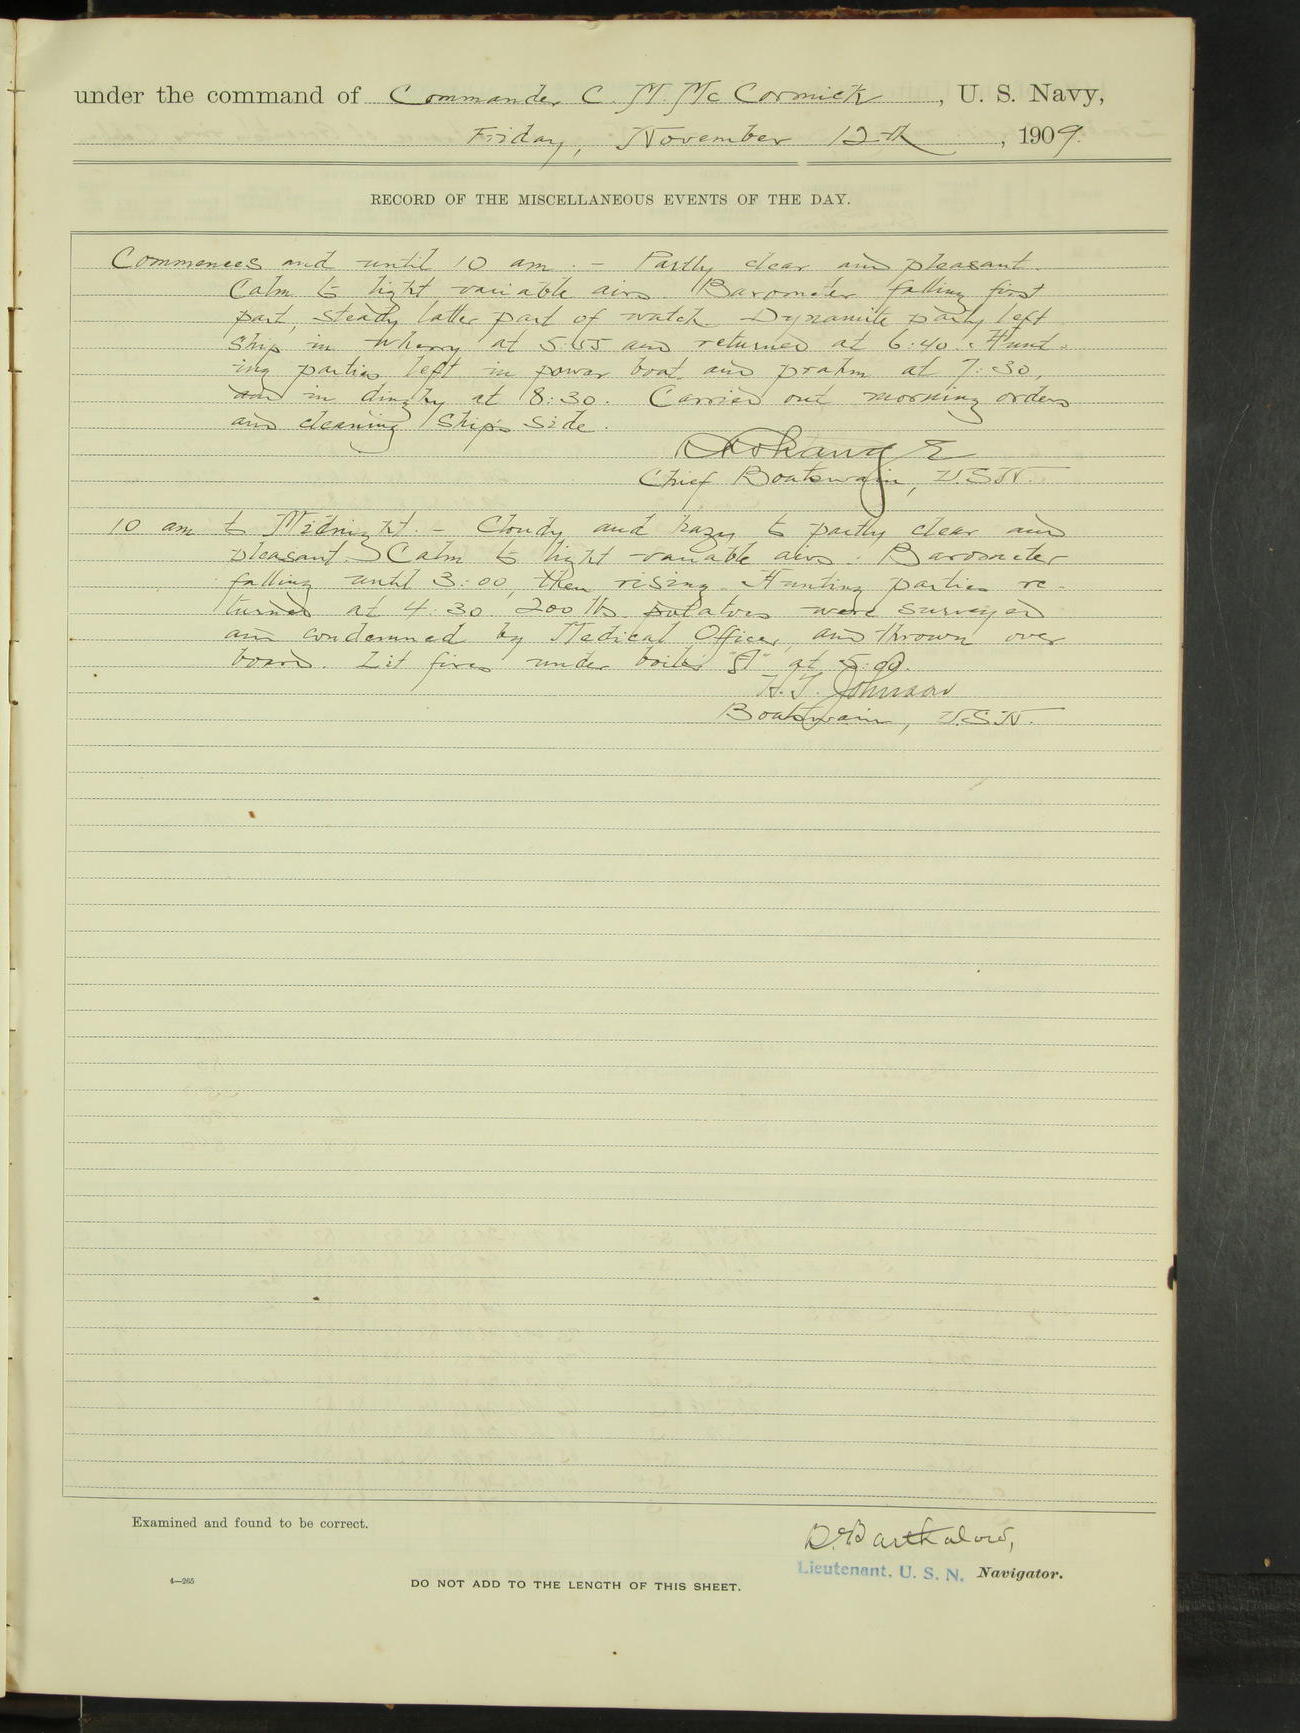 under the command of Commander C. M. McCormick, U. S. Navy,
Friday, November 12th, 1909.
RECORD OF THE MISCELLANEOUS EVENTS OF THE DAY.
Commences and until 10 am. – Partly clear and pleasant.
Calm to light variable airs. Barometer falling first
part, steady latter part of watch. Dynamite party left
ship in wherry at 5:55 and returned at 6:40. Hunt-
ing parties left in power boat and prahm at 7:30,
and in dinghy at 8:30. Carried out morning orders
and cleaning ship's side.
Chief Boatswain, U.S.N.
10 am to Midnight. – Cloudy and hazy to partly clear and
pleasant. Calm to light variable airs. Barometer
falling until 3:00, then rising. Hunting parties re-
turned at 4:30. 200 lbs. potatoes were surveyed
and condemned by Medical Officer, and thrown over
board. Lit fires under boiler "A" at 5:00.
Johnson
Boatswain, U.S.N.
Examined and found to be correct.
Lieutenant, U. S. N. Navigator.
4—265
DO NOT ADD TO THE LENGTH OF THIS SHEET.